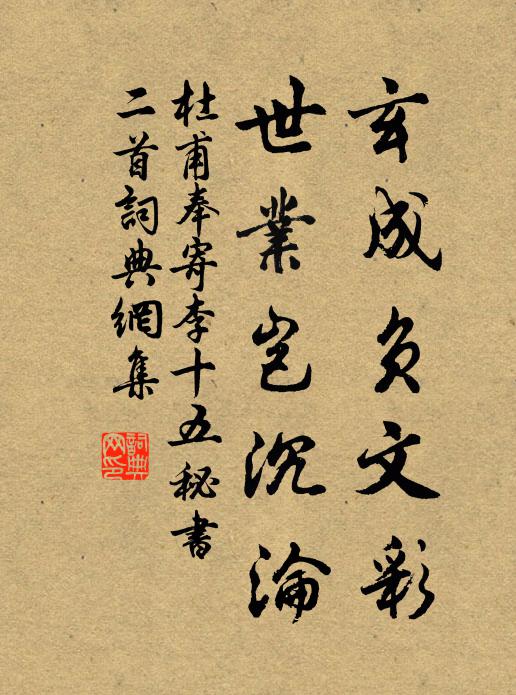 玄成負文彩
世業豈沉淪
杜甫奉寄李十五秘書
二首詞典網集
詞典
网印